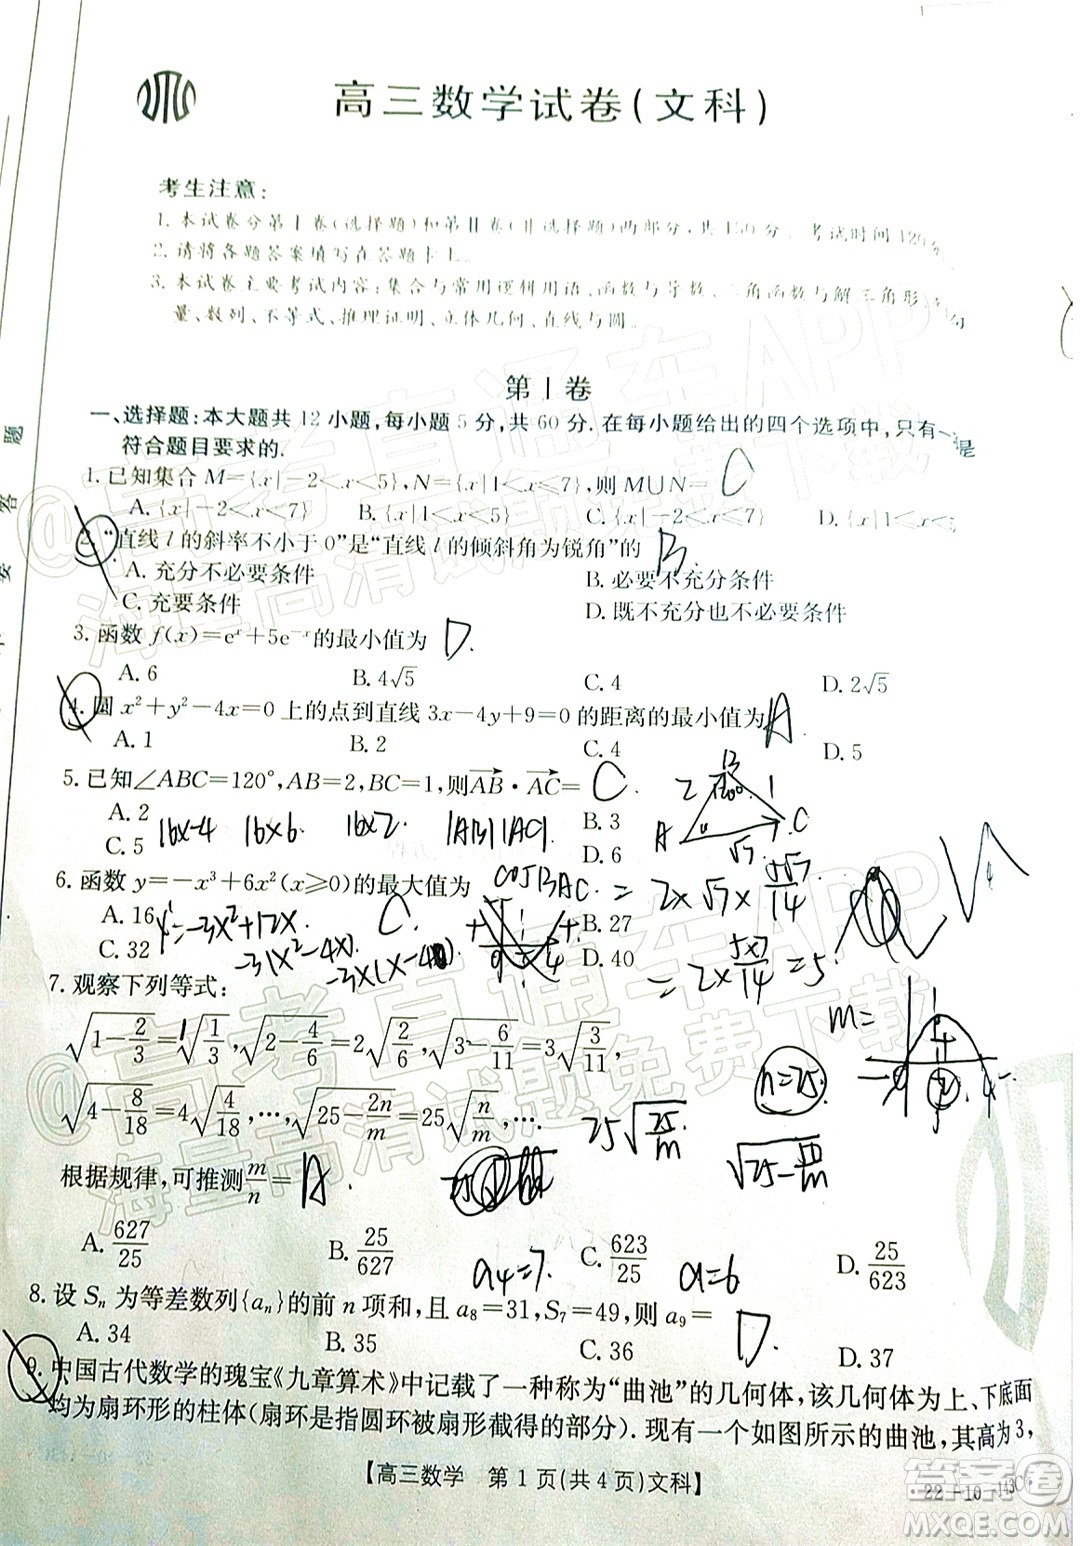 高三数学试卷(文科)
考生注意:
1. 本试卷分第Ⅰ卷(选择题)和第Ⅱ卷(非选择题)两部分,共150分。考试时间120分
2. 请将各题答案填写在答题卡上。
3. 本试卷主要考试内容:集合与常用逻辑用语、函数与导数、三角函数与解三角形、
量、数列、不等式、推理证明、立体几何、直线与圆。
第Ⅰ卷
一、选择题:本大题共12小题,每小题5分,共60分.在每小题给出的四个选项中,只有一
符合题目要求的.
是
1. 已知集合 M={x|-2<x<5},N={x|1<x<7},则 M∪N= C
A. {x|-2<x<7} B. {x|1<x<5} C. {x|-2<x<7} D. {x|1<x<
2. “直线 l 的斜率不小于 0”是“直线 l 的倾斜角为锐角”的 B
A. 充分不必要条件 B. 必要不充分条件
C. 充要条件 D. 既不充分也不必要条件
3. 函数 f(x)=eˣ+5e⁻ˣ的最小值为 D
A. 6 B. 4√5 C. 4 D. 2√5
4. 圆 x²+y²-4x=0 上的点到直线 3x-4y+9=0 的距离的最小值为 A
A. 1 B. 2 C. 4 D. 5
5. 已知∠ABC=120°,AB=2,BC=1,则AB·AC= C
A. 2 B. 3
C. 5 D. 6
16×-4 16×6. 16×2. |AB||AC|
2 B 120° 1 A C √7
6. 函数 y=-x³+6x²(x≥0)的最大值为 C.
A. 16 B. 27
C. 32 D. 40
y'=-3x²+12x.
-3(x²-4x)
-3x(x-4).
cosBAC.
=2×√7×5√7/14
=2×5×7/14=5
7. 观察下列等式:
√(1-2/3)=1√(1/3),√(2-4/6)=2√(2/6),√(3-6/11)=3√(3/11),
√(4-8/18)=4√(4/18),…,√(25-2n/m)=25√(n/m),…,
m=
n=25.
25√(25/m)
√(25-50/m)
根据规律,可推测m/n= A.
A. 627/25 B. 25/627 C. 623/25 D. 25/623
a4=7. d=6
8. 设 Sₙ 为等差数列{aₙ}的前 n 项和,且 a₈=31,S₇=49,则 a₉= D.
A. 34 B. 35 C. 36 D. 37
9. 中国古代数学的瑰宝《九章算术》中记载了一种称为“曲池”的几何体,该几何体为上、下底面
均为扇环形的柱体(扇环是指圆环被扇形截得的部分).现有一个如图所示的曲池,其高为3,
【高三数学 第1页(共4页)文科】
·22-10-143C·
@高考直通车APP
海量高清试题免费下载
@高考直通车APP
海量高清试题免费下载
答案圈
MXQE.COM
题
答
要